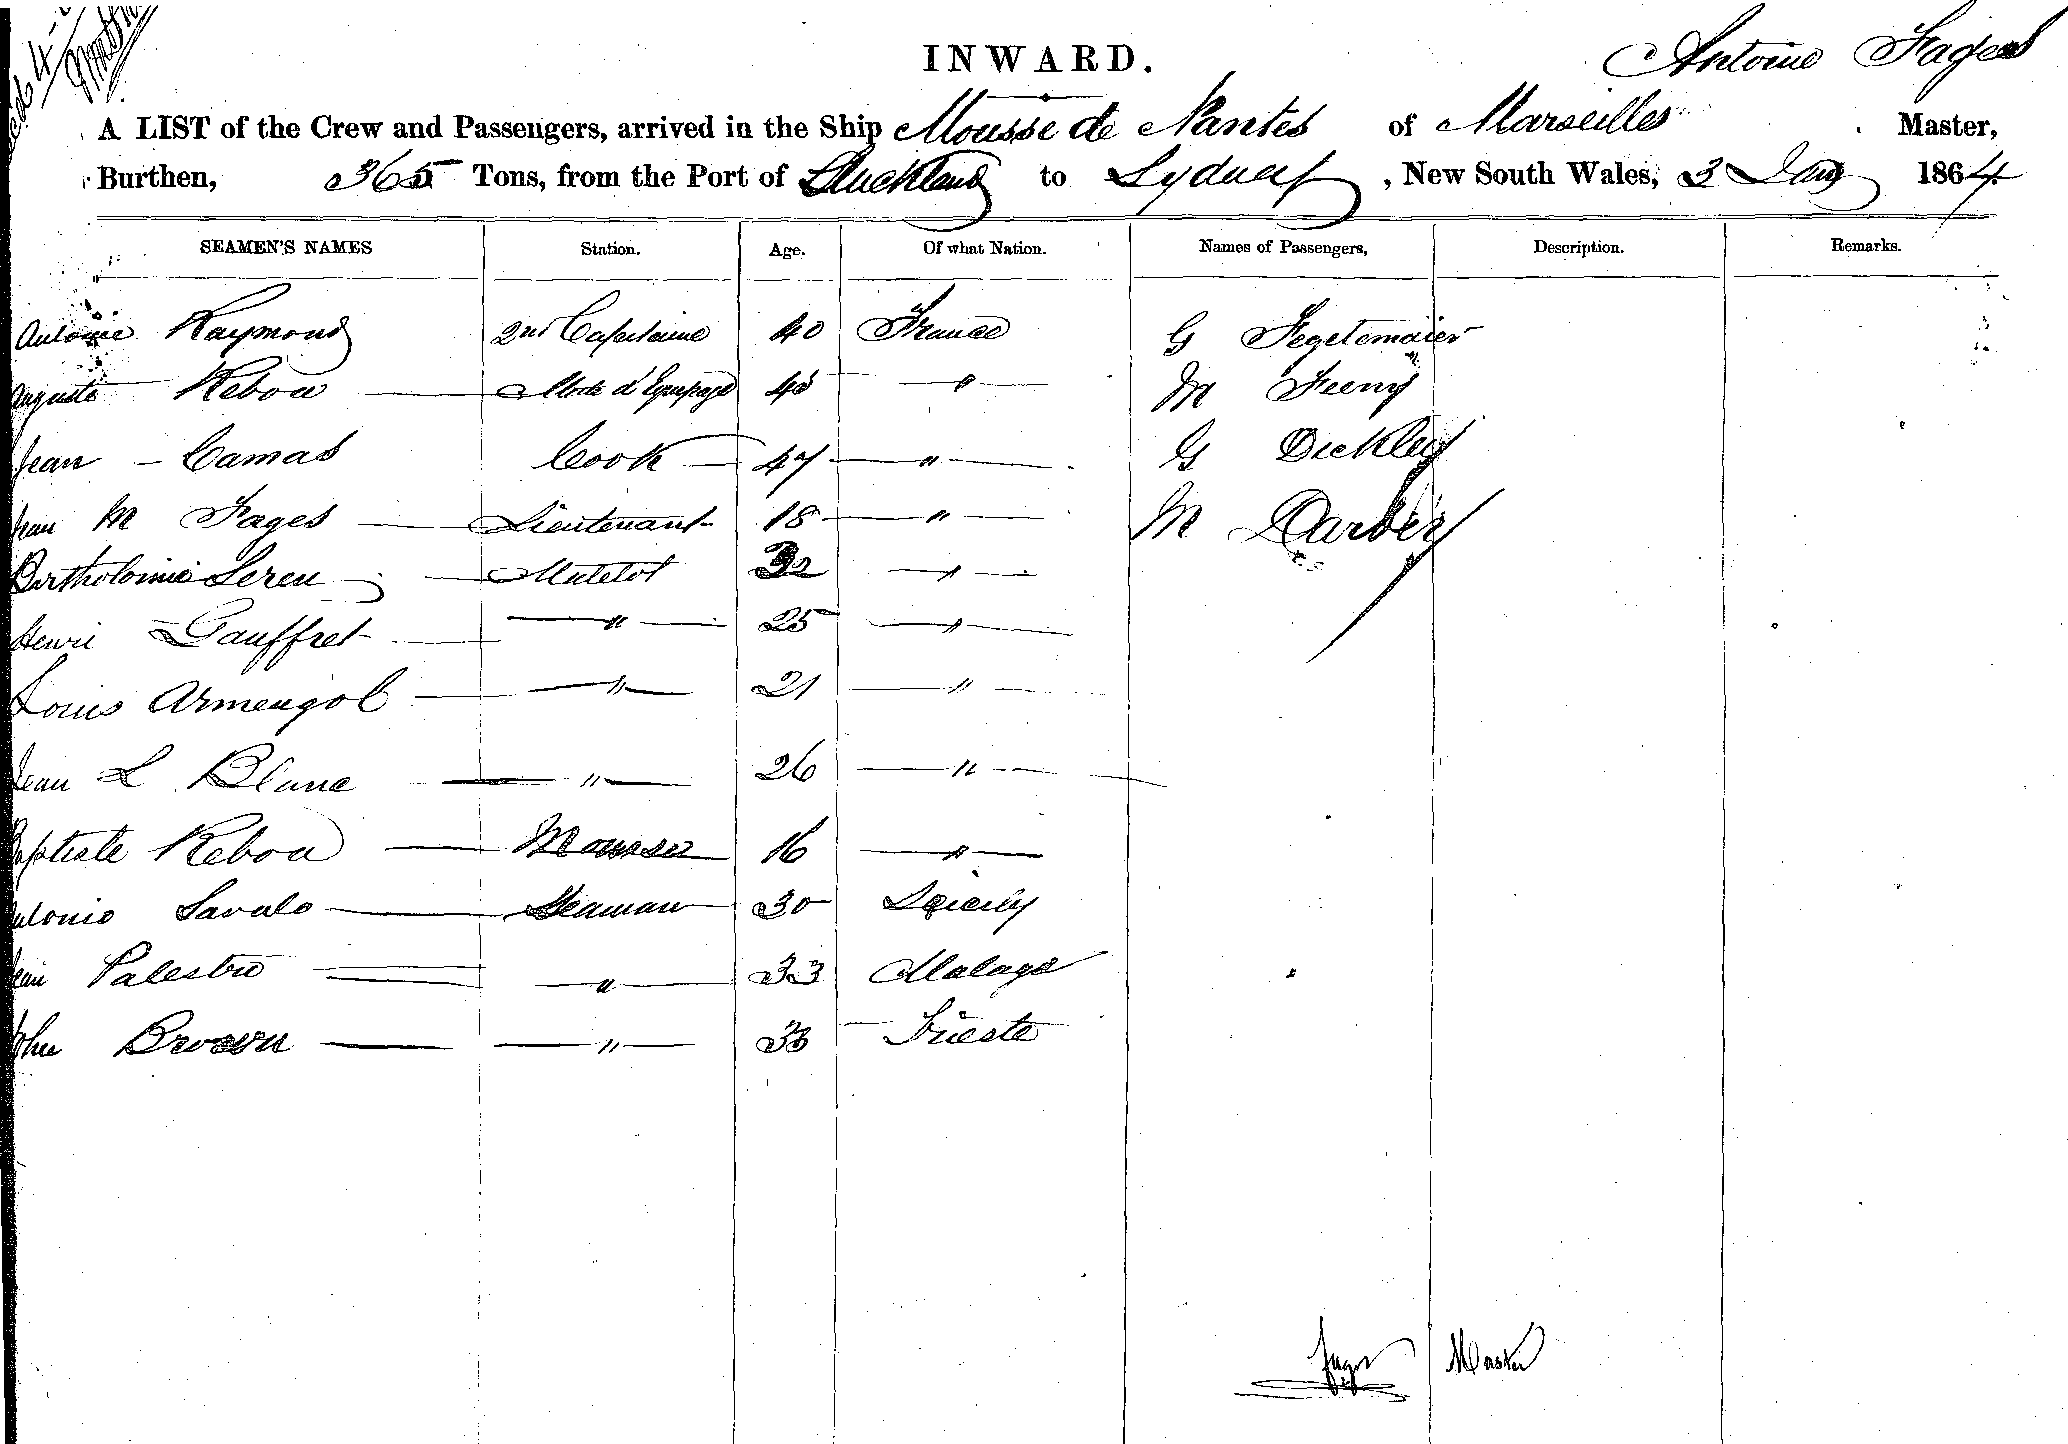 INWARD.
Antoine Fages
A LIST of the Crew and Passengers, arrived in the Ship Mousse de Nantes of Marseilles Master,
Burthen, 365 Tons, from the Port of Auckland to Sydney, New South Wales, 3 Jany 1864
SEAMEN'S NAMES Station. Age. Of what Nation. Names of Passengers, Description. Remarks.
Antoine Raymond 2nd Capitaine 40 France G Tegetemaier
Auguste Reboa d'Equipage " M Feeny
Jean - Camas Cook 47 " G Dickley
Jean M Fages Lieutenant 18 " M Darbey
Bartholomie Seren Matelot 32 "
Henri Gauffret " 25 "
Louis Armengol " 21 "
Jean L Blanc " 26 "
Baptiste Reboa Mousse 16 "
Antonio Savalo Seaman 30 Sicily
Jean Palestro " 33 Malaga
John Brown " 33 Trieste
Fages Master